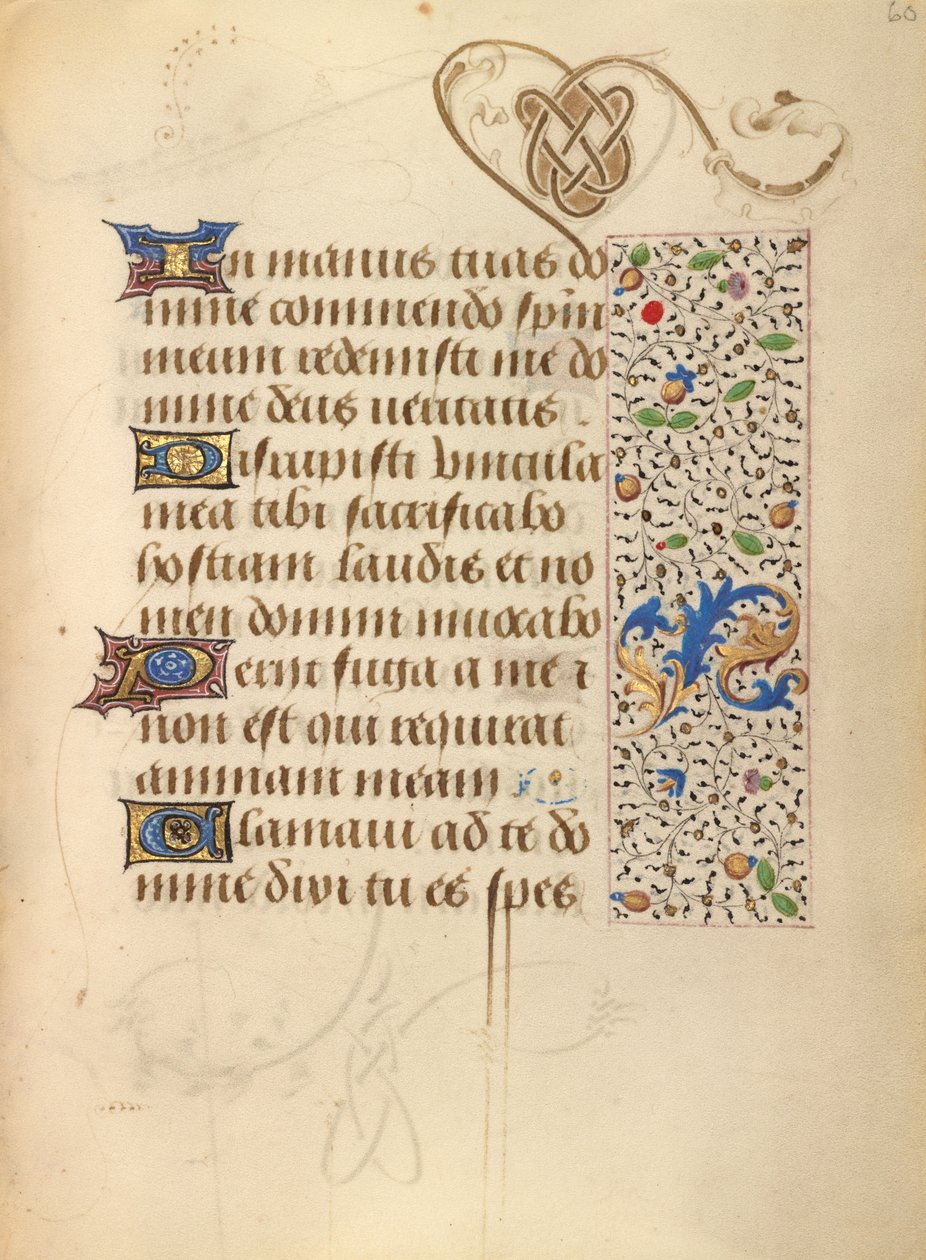 60
In manus tuas do
mine commendo sp̄m
meum redemisti me do
mine deus ueritatis .
Disrupisti vincula
mea tibi sacrificabo
hostiam laudis et no
men domini inuocabo
Periit fuga a me ⁊
non est qui requirat
animam meam
Clamaui ad te do
mine dixi tu es spes